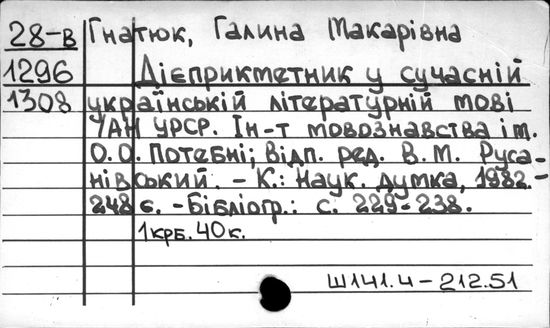 28-в Гнатюк, Галина Макарівна
1296 Дієприкметник у сучасній
1308 українській літературній мові
/АН УРСР. Ін-т мовознавства ім.
О.О. Потебні; Відп. ред. В.М. Руса-
нівський. - К.: Наук. думка, 1982.-
248 с. - Бібліогр.: с. 229-238.
1крб. 40к.
Ш141.4-212.51